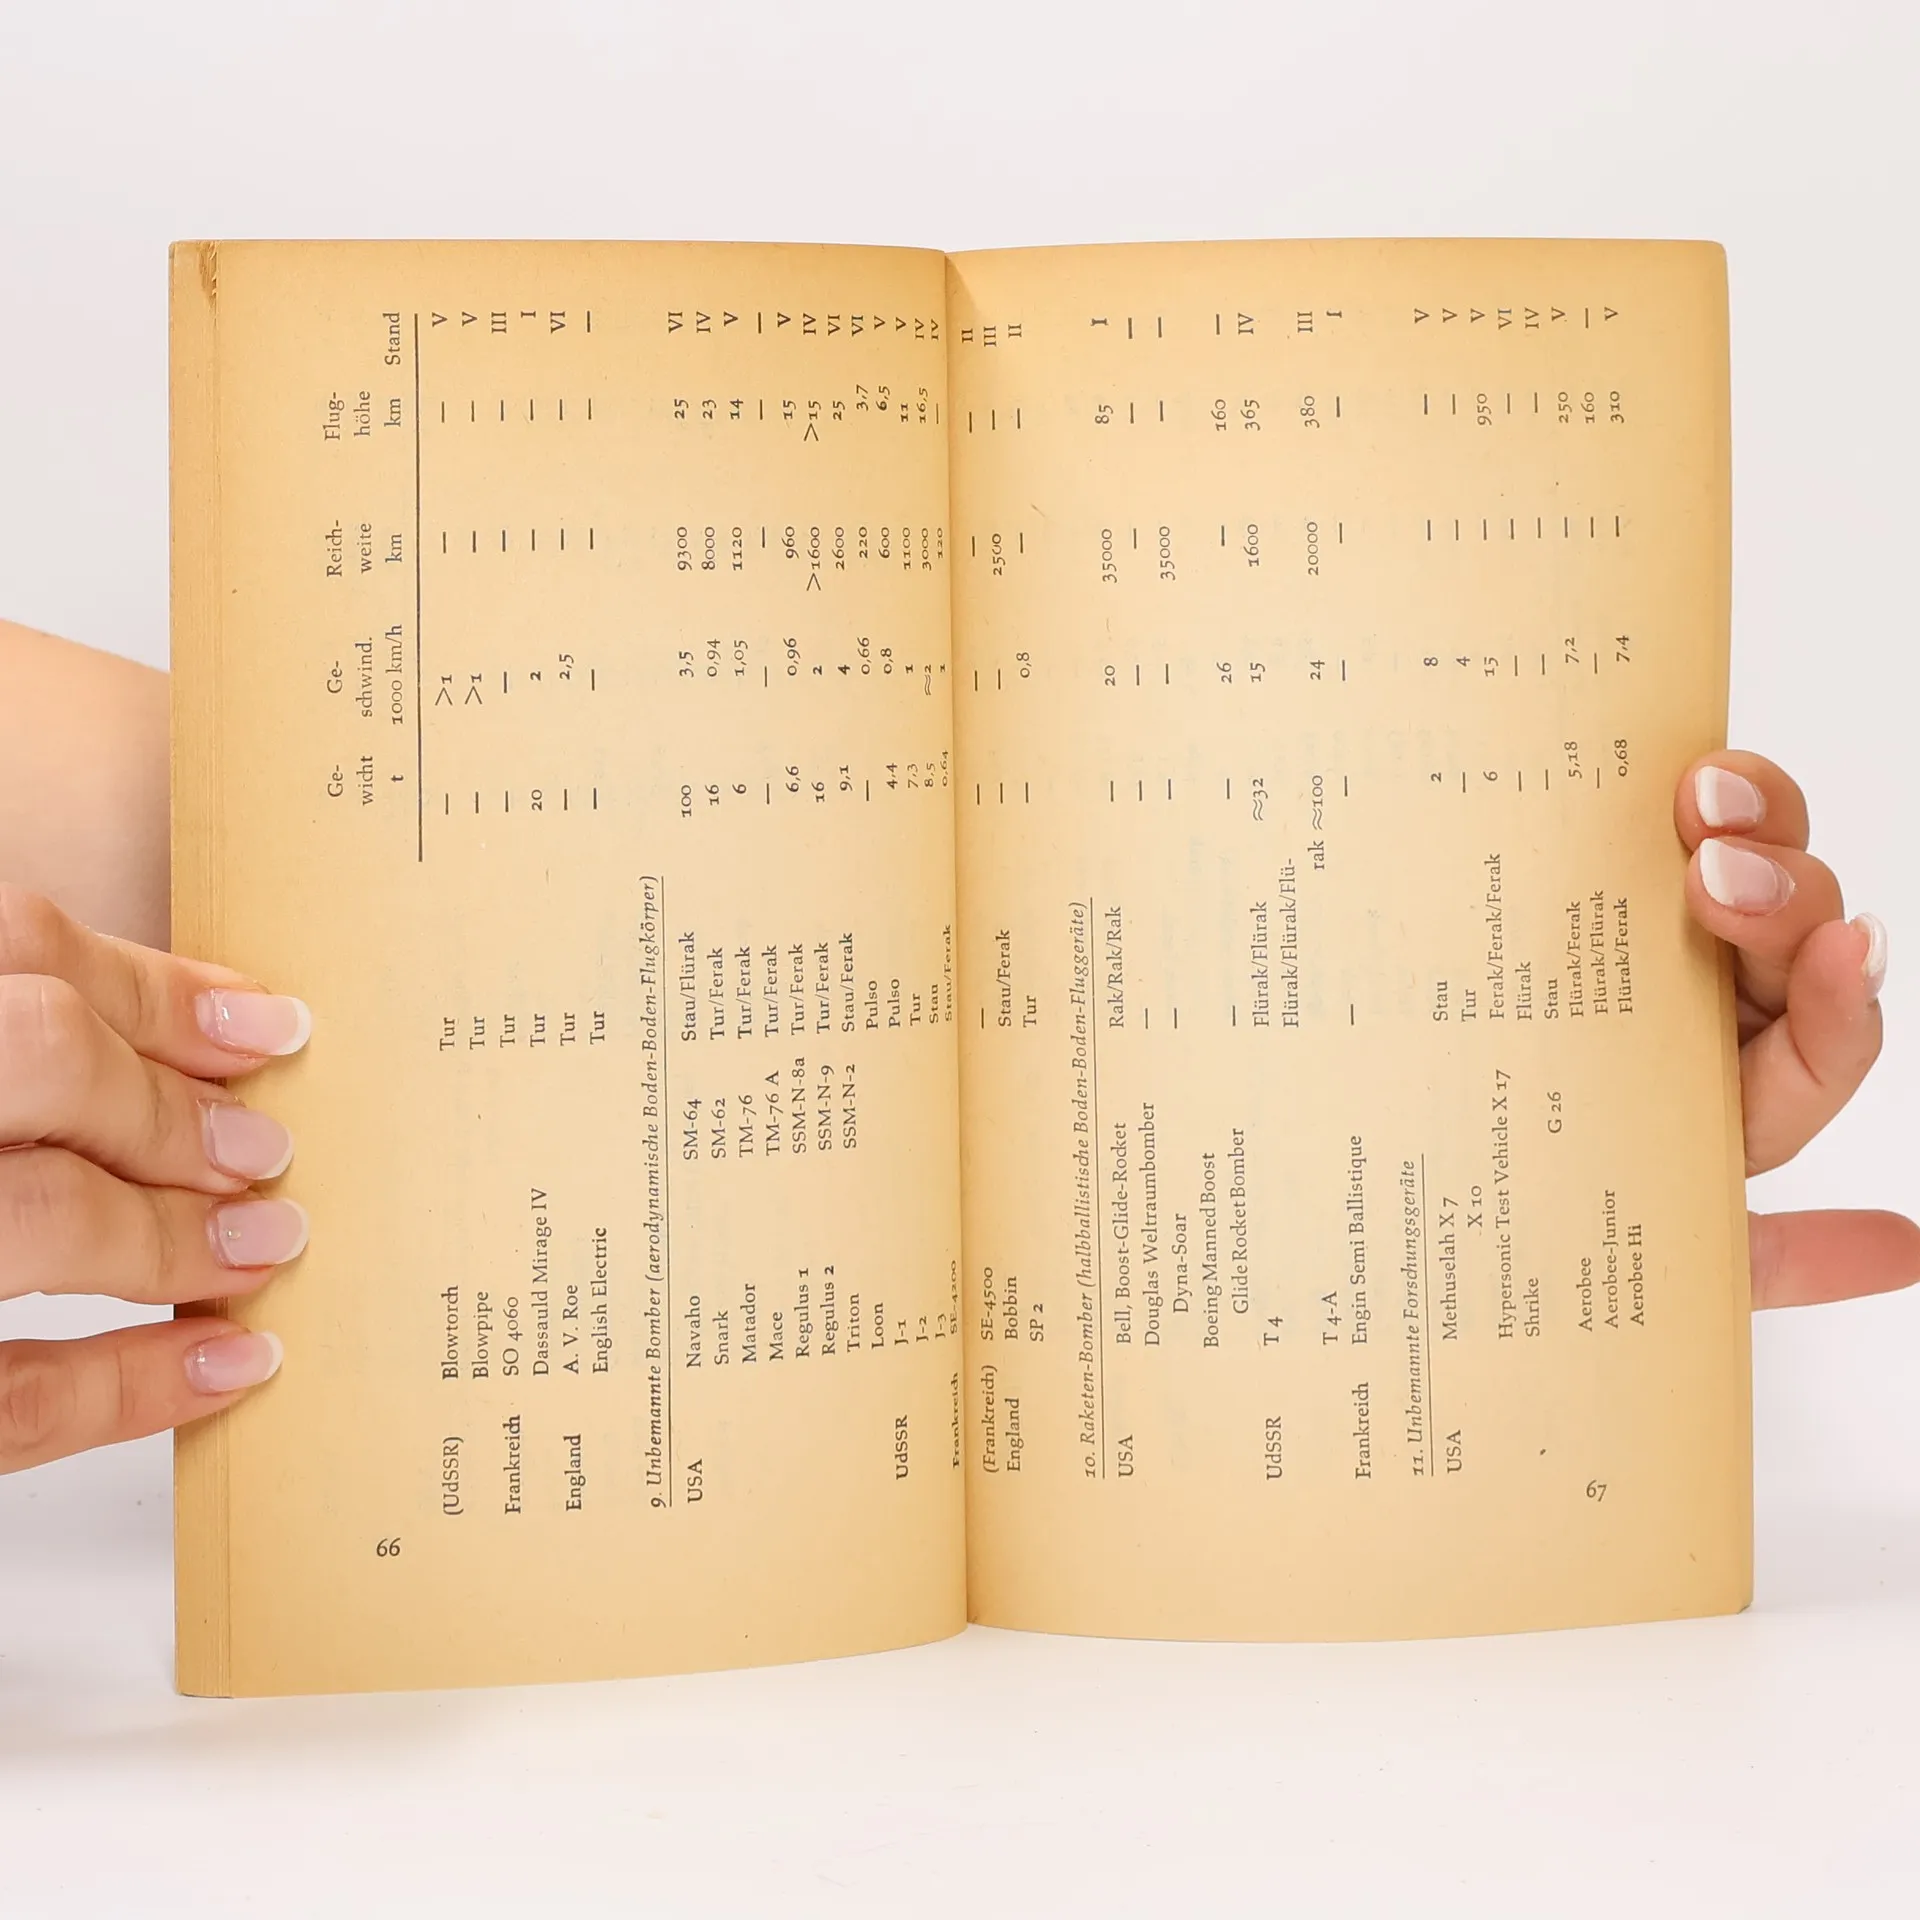 Ge- Ge- Reich- Flug-
wicht schwind. weite höhe
t 1000 km/h km km Stand
(UdSSR) Blowtorch Tur — >1 — — V
Blowpipe Tur — >1 — — V
Frankreich SO 4060 Tur — — — — III
Dassauld Mirage IV Tur 20 2 — — I
England A. V. Roe Tur — 2,5 — — VI
English Electric Tur — — — — —
9. Unbemannte Bomber (aerodynamische Boden-Boden-Flugkörper)
USA Navaho SM-64 Stau/Flürak 100 3,5 9300 25 VI
Snark SM-62 Tur/Ferak 16 0,94 8000 23 IV
Matador TM-76 Tur/Ferak 6 1,05 1120 14 V
Mace TM-76 A Tur/Ferak — — — — —
Regulus 1 SSM-N-8a Tur/Ferak 6,6 0,96 960 15 V
Regulus 2 SSM-N-9 Tur/Ferak 16 2 >1600 >15 IV
Triton SSM-N-2 Stau/Ferak 9,1 4 2600 25 VI
Loon Pulso — 0,66 220 3,7 VI
UdSSR J-1 Pulso 4,4 0,8 600 6,5 V
J-2 Tur 7,3 1 1100 11 V
J-3 Stau 8,5 ≈2 3000 16,5 IV
Frankreich SE-4200 Stau/Ferak 0,64 1 120 — IV
66
(Frankreich) SE-4500 — — — — — II
England Bobbin Stau/Ferak — — 2500 — III
SP 2 Tur — 0,8 — — II
10. Raketen-Bomber (halbballistische Boden-Boden-Fluggeräte)
USA Bell, Boost-Glide-Rocket Rak/Rak/Rak — 20 35000 85 I
Douglas Weltraumbomber — — — — — —
Dyna-Soar — — — 35000 — —
Boeing Manned Boost
Glide Rocket Bomber — — 26 — 160 —
UdSSR T 4 Flürak/Flürak ≈32 15 1600 365 IV
Flürak/Flürak/Flü-
T 4-A rak ≈100 24 20000 380 III
Frankreich Engin Semi Ballistique — — — — — I
11. Unbemannte Forschungsgeräte
USA Methuselah X 7 Stau 2 8 — — V
X 10 Tur — 4 — — V
Hypersonic Test Vehicle X 17 Ferak/Ferak/Ferak 6 15 — 950 V
Shrike Flürak — — — — VI
G 26 Stau — — — — IV
Aerobee Flürak/Ferak 5,18 7,2 — 250 V
Aerobee-Junior Flürak/Flürak — — — 160 —
Aerobee Hi Flürak/Ferak 0,68 7,4 — 310 V
67